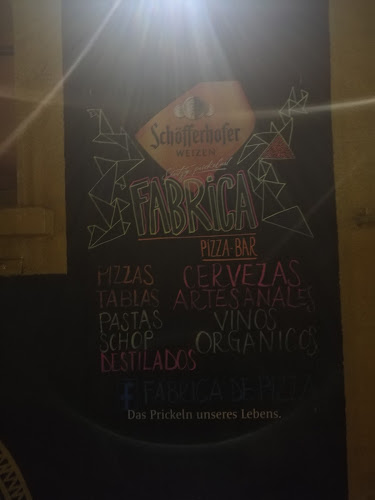 Schöfferhofer
WEIZEN
FABRICA
PIZZA-BAR
PIZZAS
TABLAS
PASTAS
SCHOP
DESTILADOS
CERVEZAS
ARTESANALES
VINOS
ORGANICOS
f FABRICA DE PIZZA
Das Prickeln unseres Lebens.